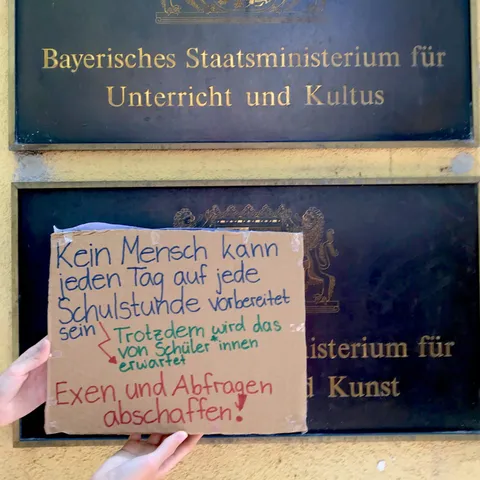 Bayerisches Staatsministerium für
Unterricht und Kultus
Kein Mensch kann
jeden Tag auf jede
Schulstunde vorbereitet
sein
Trotzdem wird das
von Schüler*innen
erwartet
Exen und Abfragen
abschaffen!
isterium für
Kunst